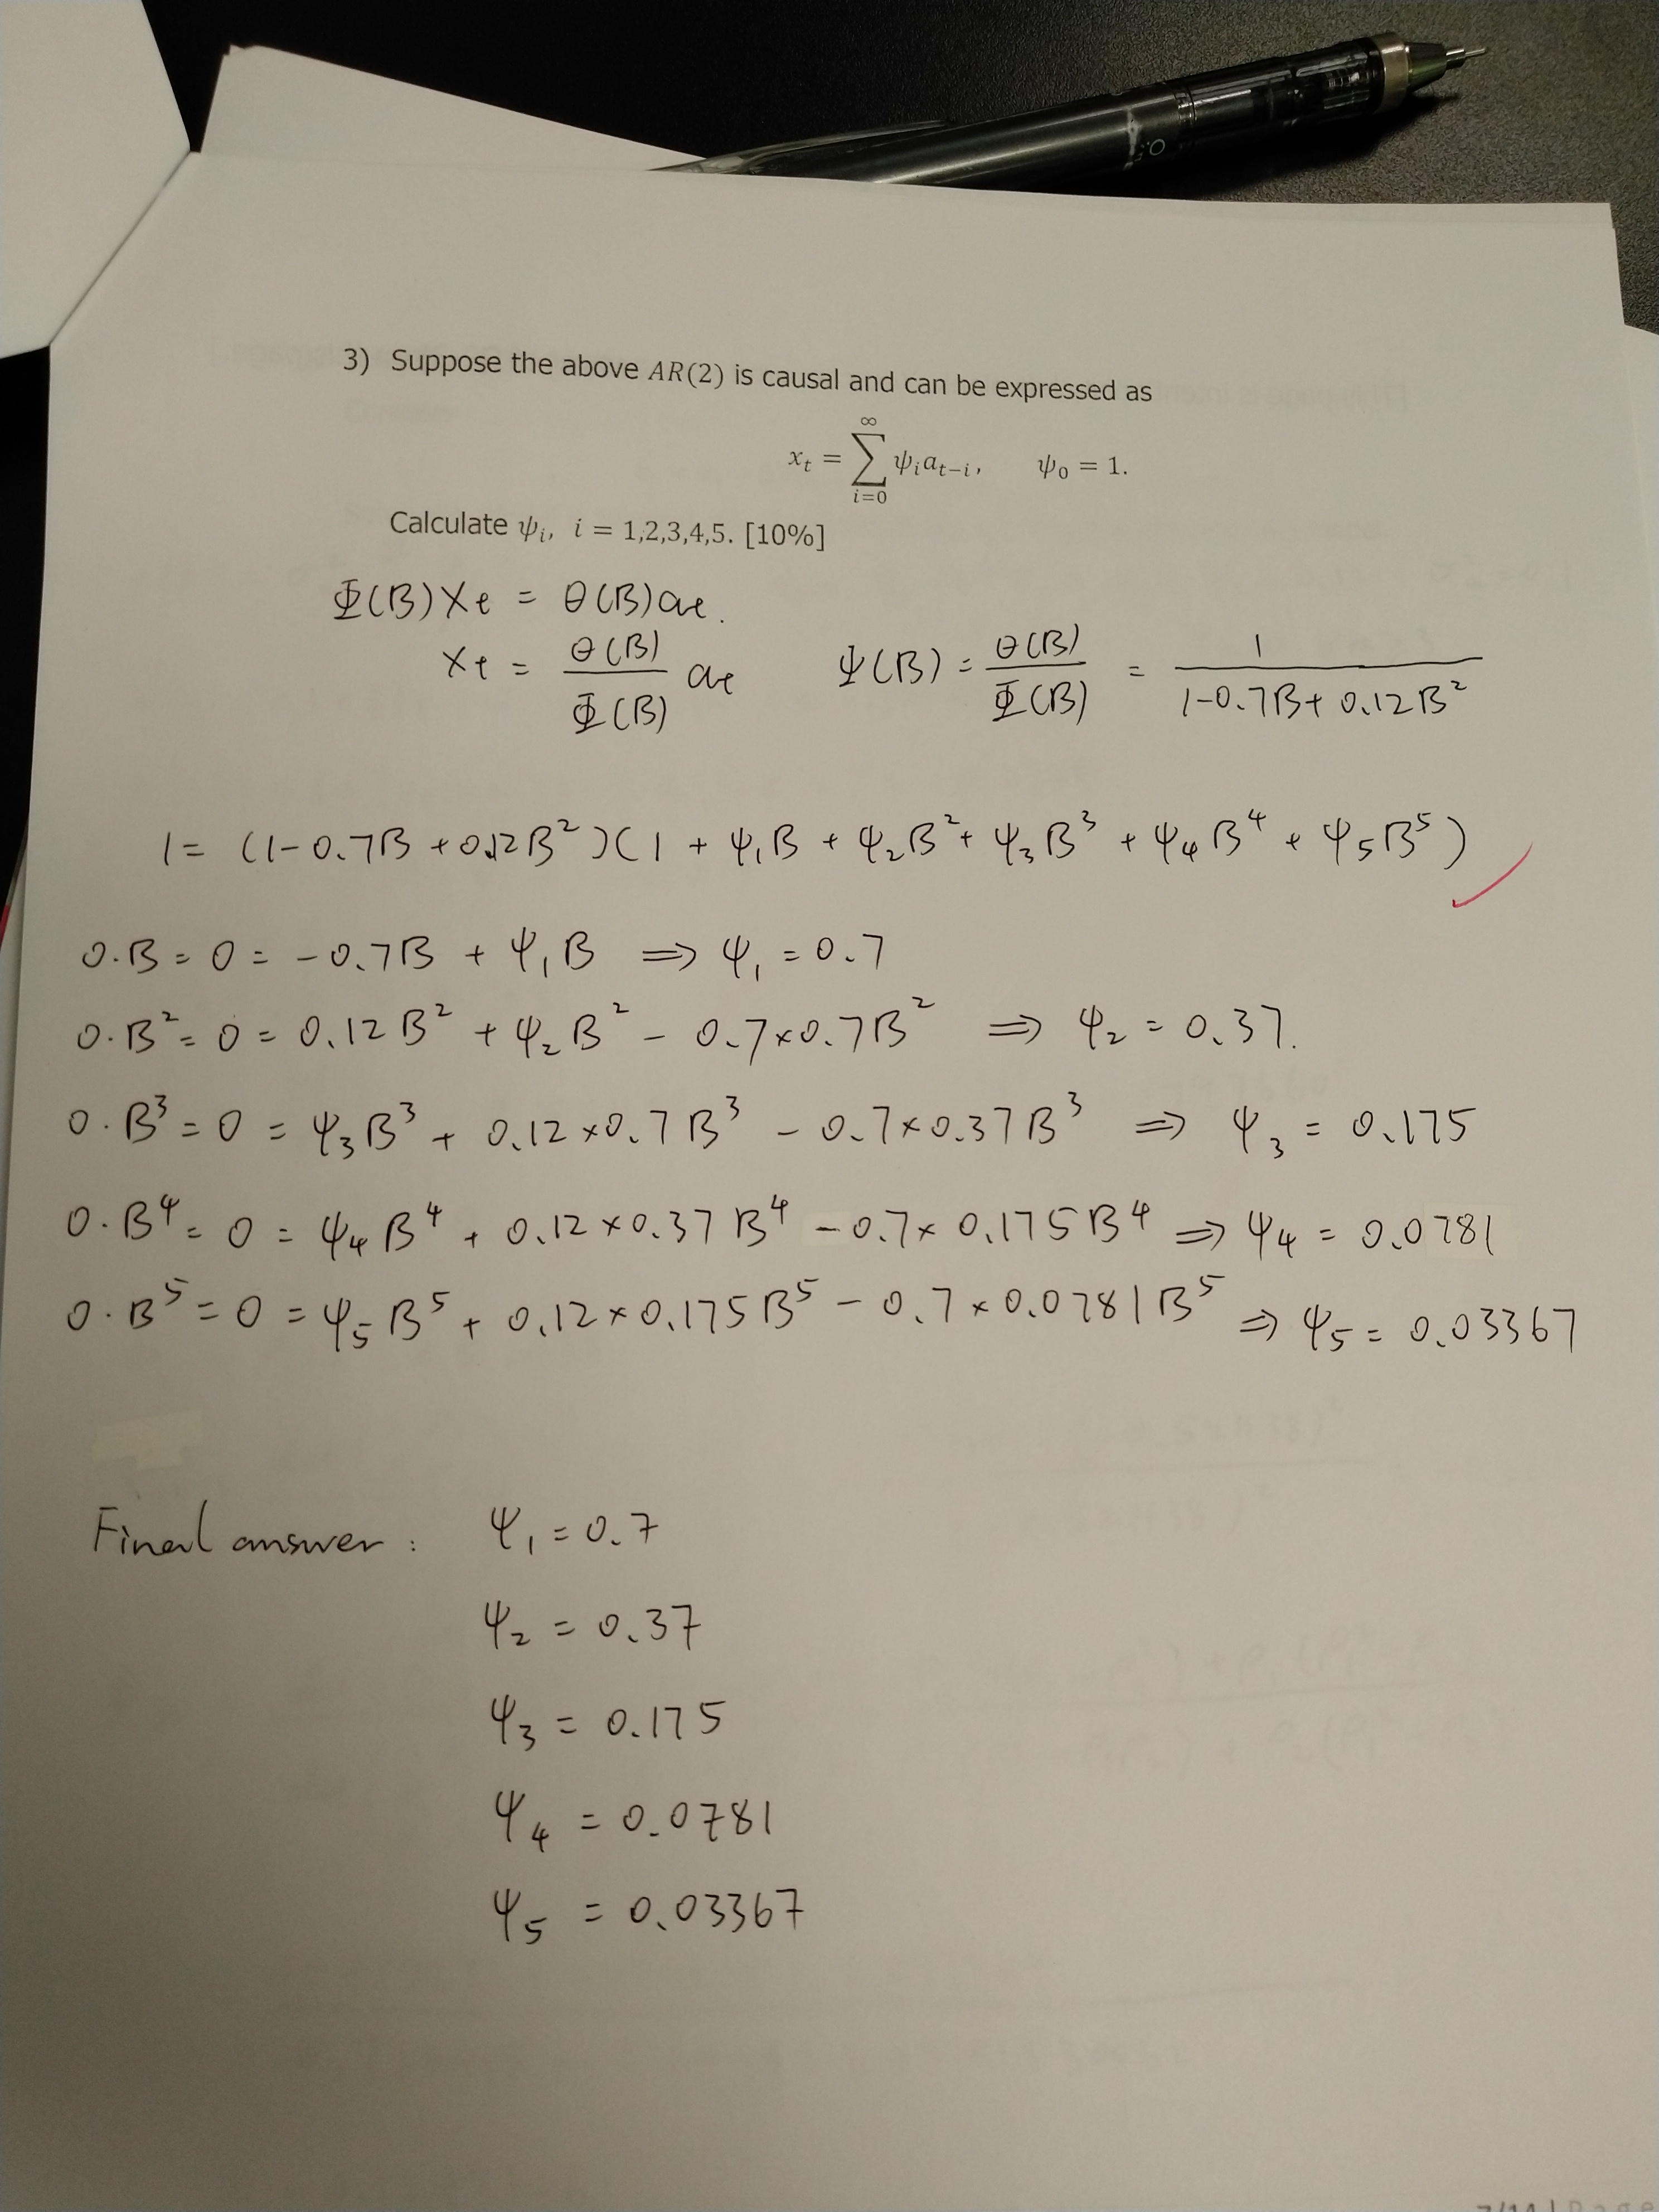 3) Suppose the above AR(2) is causal and can be expressed as
x_t = ∑_{i=0}^{∞} ψ_i a_{t−i}, ψ_0 = 1.
Calculate ψ_i, i = 1,2,3,4,5. [10%]
Φ(B)X_t = θ(B)a_t.
X_t = θ(B)/Φ(B) a_t    Ψ(B) = θ(B)/Φ(B) = 1/(1-0.7B+0.12B²)
1 = (1-0.7B+0.12B²)(1 + ψ₁B + ψ₂B² + ψ₃B³ + ψ₄B⁴ + ψ₅B⁵)
0·B = 0 = -0.7B + ψ₁B ⟹ ψ₁ = 0.7
0·B² = 0 = 0.12B² + ψ₂B² - 0.7×0.7B² ⟹ ψ₂ = 0.37.
0·B³ = 0 = ψ₃B³ + 0.12×0.7B³ - 0.7×0.37B³ ⟹ ψ₃ = 0.175
0·B⁴ = 0 = ψ₄B⁴ + 0.12×0.37B⁴ - 0.7×0.175B⁴ ⟹ ψ₄ = 0.0781
0·B⁵ = 0 = ψ₅B⁵ + 0.12×0.175B⁵ - 0.7×0.0781B⁵ ⟹ ψ₅ = 0.03367
Final answer: ψ₁ = 0.7
ψ₂ = 0.37
ψ₃ = 0.175
ψ₄ = 0.0781
ψ₅ = 0.03367